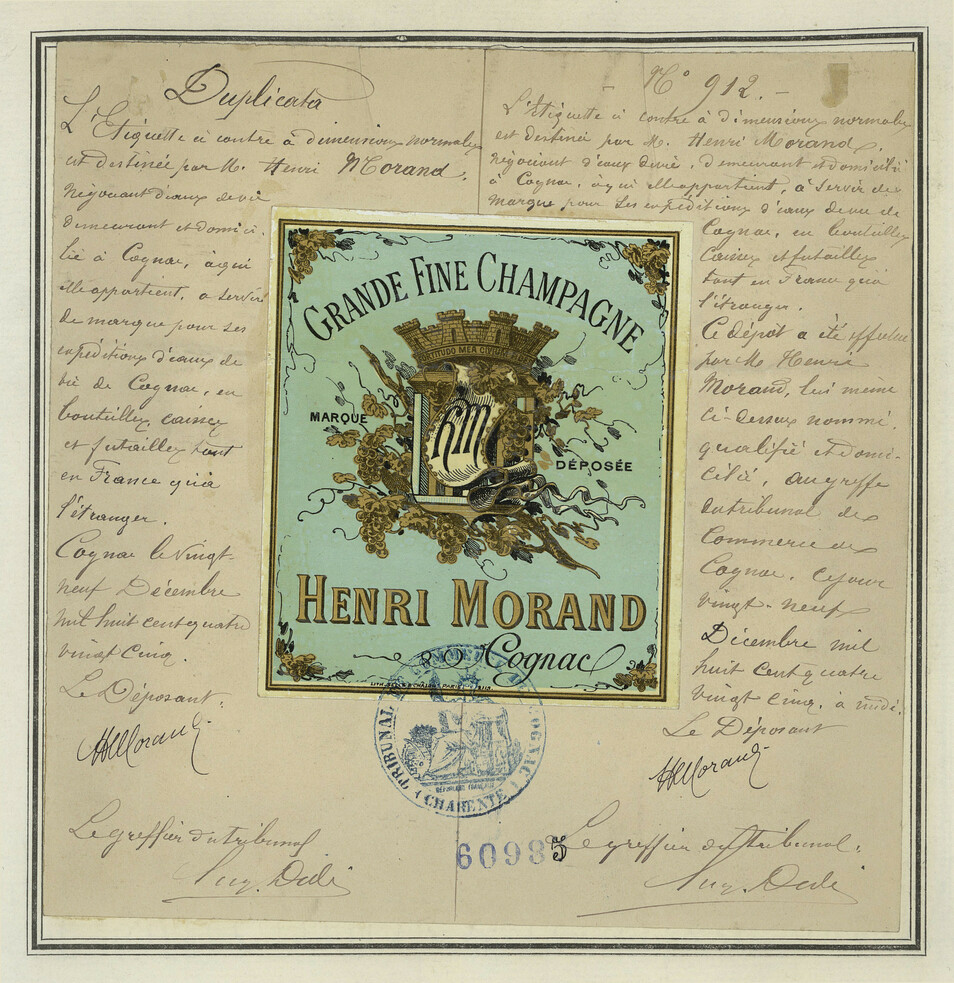 Duplicata
L'Etiquette ci contre à dimensions normales
est destinée par M. Henri Morand,
négociant d'eaux de vie
demeurant et domici-
lié à Cognac, à qui
elle appartient, à servir
de marque pour ses
expéditions d'eaux de
vie de Cognac, en
bouteilles caisses
et futailles tant
en France qu'à
l'étranger.
Cognac le vingt-
neuf Décembre
mil huit cent quatre
vingt cinq.
Le Déposant,
HMorand
Le greffier du tribunal
N° 912.-
L'Etiquette ci contre à dimensions normales
est destinée par M. Henri Morand,
négociant d'eaux de vie, demeurant et domicilié
à Cognac, à qui elle appartient, à servir de
marque pour ses expéditions d'eaux de vie de
Cognac, en bouteilles
caisses et futailles
tant en France qu'à
l'étranger.
Ce dépot a été effectué
par M. Henri
Morand, lui même
ci-dessus nommé,
qualifié et domi-
cilié, au greffe
du tribunal de
Commerce de
Cognac, ce jour
vingt-neuf
Décembre mil
huit cent quatre
vingt cinq, à midi.
Le Déposant
HMorand
Le greffier du tribunal.
GRANDE FINE CHAMPAGNE
FORTITUDO MEA CIVIUM
MARQUE
DÉPOSÉE
HM
HENRI MORAND
Cognac
TRIBUNAL DE COMMERCE DE COGNAC
RÉPUBLIQUE FRANÇAISE
CHARENTE
60985